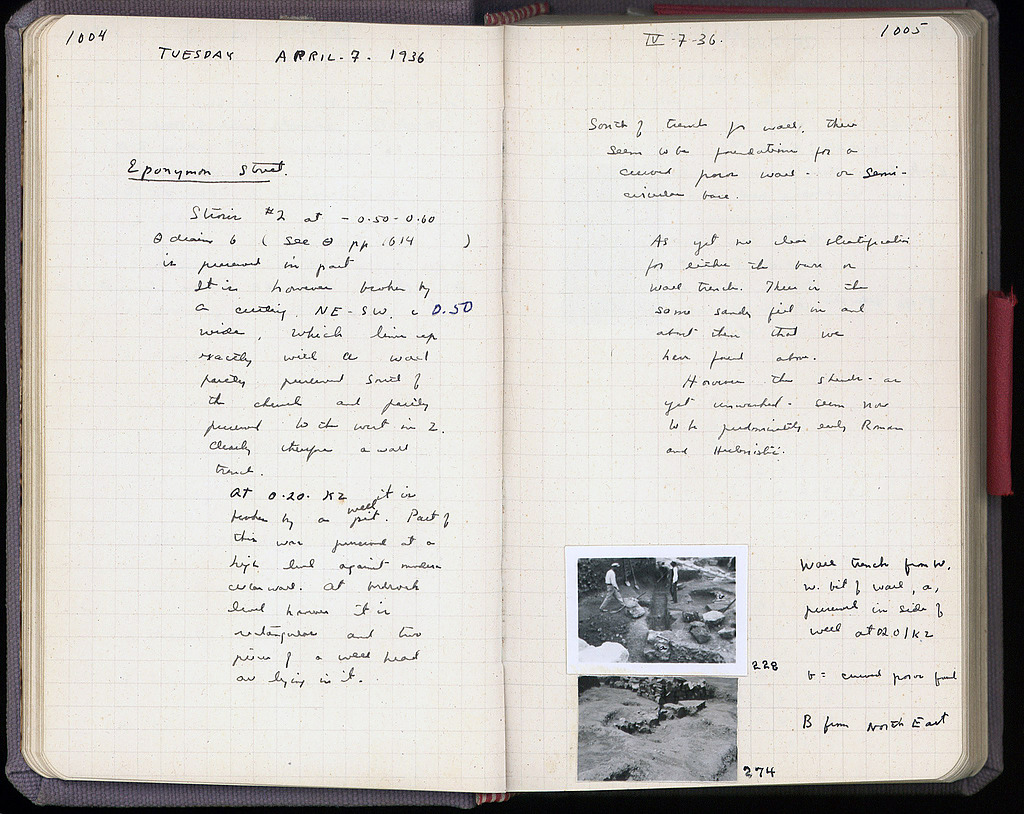 1004
TUESDAY APRIL-7. 1936
Eponymon Street.
Stosis #2 at -0.50-0.60
( see θ pp. 1614 )
is preserved in part
It is however broken by
a cutting, NE-SW. c 0.50
wide, which lines up
exactly with a wall
partly preserved South of
the church and partly
preserved to the west in 2.
Clearly therefore a wall
trench.
At 0-20. K2 it is
broken by a well pit. Part of
this was preserved at a
high level against modern
cellar wall. At bedrock
level however it is
rectangular and two
pieces of a well head
are lying in it.
IV-7-36.
1005
South of trench for wall, there
seem to be foundations for a
curved poros wall - or semi-
circular base.
As yet no clear stratification
for either the base or
wall trench. There is the
same sandy fill in and
about them that we
have found above.
However the sherds - as
yet unwashed - seem now
to be predominantly early Roman
and Hellenistic.
Wall trench from W.
W. bit of wall, a,
preserved in side of
well at 20/K2
228
b = curved poros found
B from North East
274